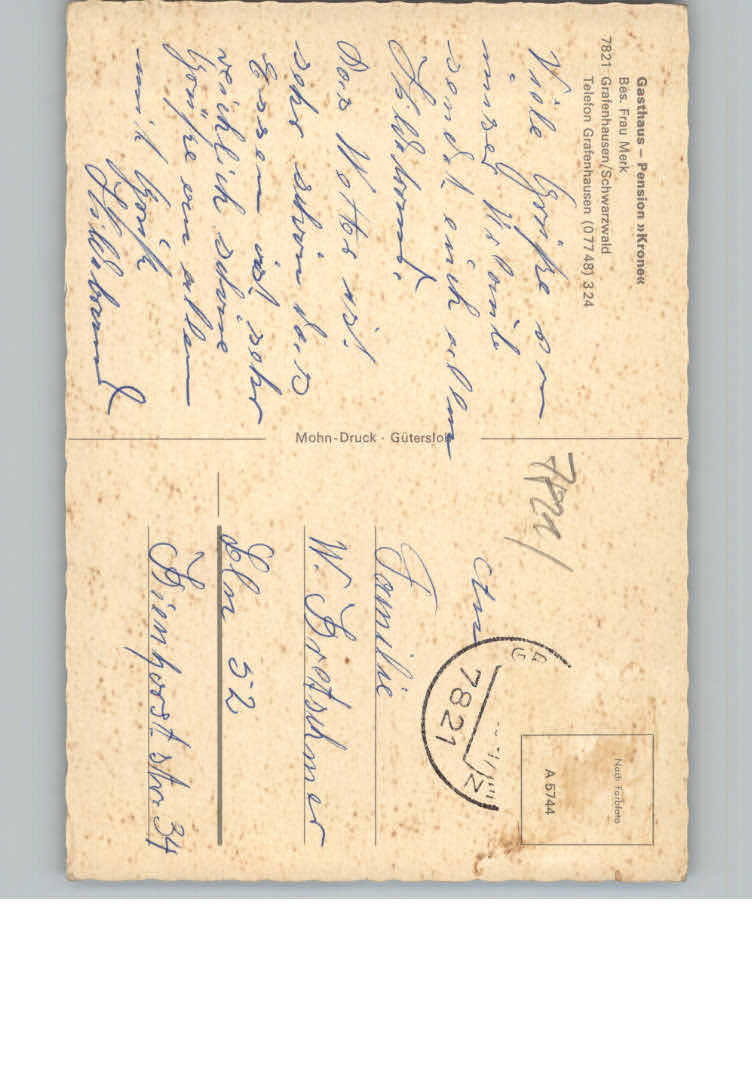 Gasthaus – Pension »Krone«
Bes. Frau Merk
7821 Grafenhausen/Schwarzwald
Telefon Grafenhausen (0 77 48) 3 24
Viele Grüße von
unser Urlaub
sendet euch allen
Hildebrand.
Das Wetter ist
sehr schön das
Essen ist sehr
reichlich schöne
Grüße an allen
mit Gruß
Hildebrand
Mohn-Druck · Gütersloh
An
Familie
W. Bretschmer
Eln 52
Bienhorststr. 34
7821
Nach Farbfoto
A 5744